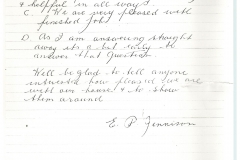 & helpful in all ways
C We are very pleased with
finished job
D As I am answering straight
away its a bit early to
answer that question.
Well be glad to tell anyone
interested how pleased we are
with our house & to show
them around
E. P. Jennison